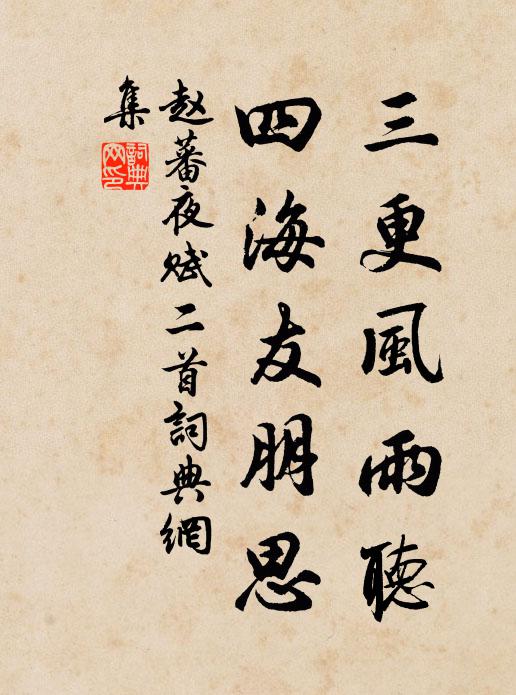 三更風雨聽
四海友朋思
赵蕃夜赋二首詞典網
集
詞典網印